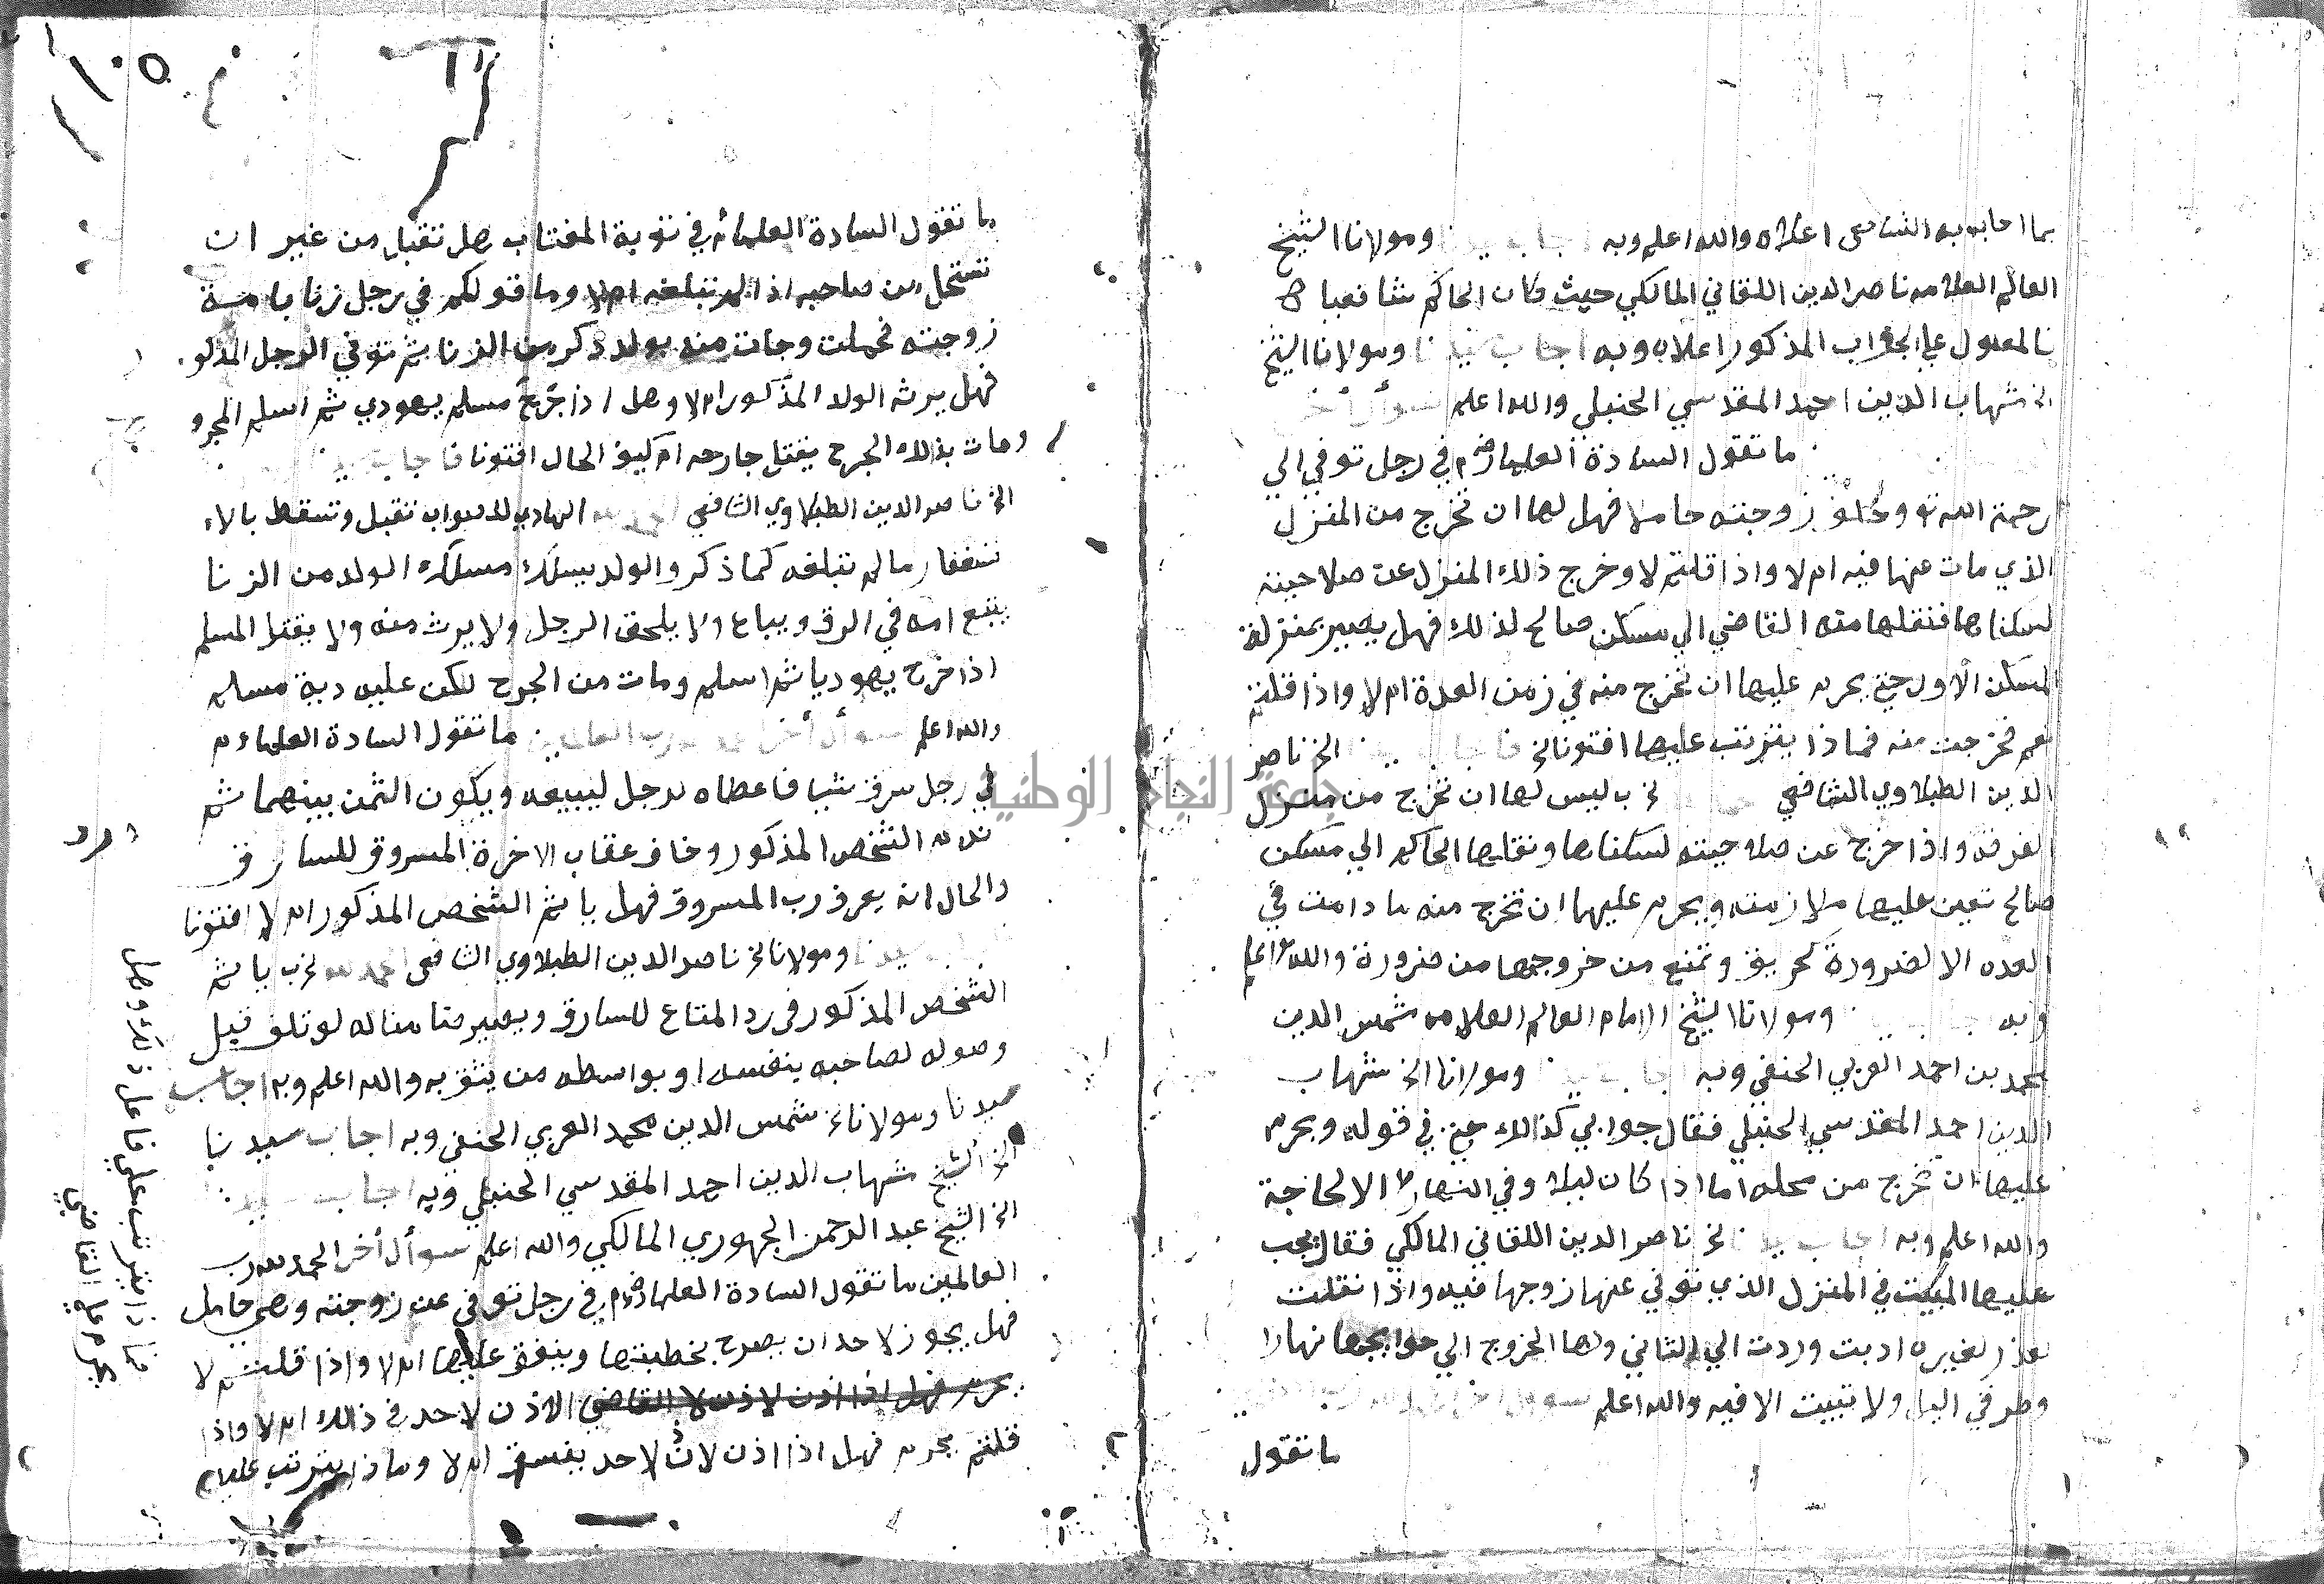 بما اجابه به الشافعي اعلاه والله اعلم وبه اجاب سيدنا ومولانا الشيخ
العالم العلامه ناصر الدين اللقاني المالكي حيث كان الحاكم شافعيا
فالمعول على الجواب المذكور اعلاه وبه اجاب سيدنا ومولانا الشيخ
الخ شهاب الدين احمد المقدسي الحنبلي والله اعلم سوأل أخر
ما تقول السادة العلماء رضم في رجل توفي الي
رحمة الله تع وخلف زوجته حاملا فهل لها ان تخرج من المنزل
الذي مات عنها فيه ام لا واذا قلتم لا وخرج ذلك المنزل عن صلاحيته
لسكناها فنقلها منه القاضي الي مسكن صالح لذلك فهل يصير بمنزلة
المسكن الأول حتي يحرم عليها ان تخرج منه في زمن العدة ام لا واذا قلتم
نعم فخرجت منه فماذا يترتب عليها افتونا الخ فاجاب سيدنا الخ ناصر
الدين الطبلاوي الشافعي ليس لها ان تخرج من منزل
الفرقه واذا خرج عن صلاحيته لسكناها ونقلها الحاكم الي مسكن
صالح تعين عليها ملازمته ويحرم عليها ان تخرج منه ما دامت في
العده الا لضرورة كحريق وتمنع من خروجها من ضرورة والله اعلم
وبه اجاب ومولانا الشيخ الامام العالم العلامه شمس الدين
محمد بن احمد الغربي الحنفي وبه اجاب سيدنا ومولانا الخ شهاب
الدين احمد المقدسي الحنبلي فقال جوابي كذلك في قوله ويحرم
عليها ان تخرج من محله اما اذا كان ليلا وفي النهار لا الا لحاجة
والله اعلم وبه اجاب سيدنا الخ ناصر الدين اللقاني المالكي فقال يجب
عليها المبيت في المنزل الذي توفي عنها زوجها فيه واذا نقلت
لعذر لغيره ادبت وردت الي الثاني ولها الخروج الي حوايجها نهارا
وطرفي اليل ولا تبيت الا فيه والله اعلم سوال اخر
ما تقول
١٠٥
ما تقول السادة العلماء في توبة المغتاب هل تقبل من غير ان
تستحل من صاحبه اذا لم تبلغه ام لا وما قولكم في رجل زنا بامة
زوجته فحملت وجات منه بولد ذكر من الزنا ثم توفي الرجل المذكو
فهل يرثه الولد المذكور ام لا وهل اذا جرح مسلم يهودي ثم اسلم المجرو
ومات بذلك الجرح يقتل جارحه ام كيف الحال افتونا فاجاب سيد
الخ ناصر الدين الطبلاوي الشافعي الحمد لله الهادي للصواب تقبل وتسقط بالا
ستغفار ما لم تبلغه كما ذكر والولد يسلك مسلك الولد من الزنا
يتبع امه في الرق ويباع ولا يلحق الرجل ولا يرث منه ولا يقتل المسلم
اذا خرج يهوديا ثم اسلم ومات من الجرح لكن عليه دية مسلم
والله اعلم سوأل أخر الحمد لله رب العالمين ما تقول السادة العلماء
في رجل سرق شيا فاعطاه لرجل ليبيعه ويكون الثمن بينهما ثم
ندم الشخص المذكور وخاف عقاب الاخرة المسروق للسارق
والحال انه يعرف رب المسروق فهل ياثم الشخص المذكور ام لا افتونا
سيدنا ومولانا الخ ناصر الدين الطبلاوي الشافعي الحمد لله ياثم
الشخص المذكور في رد المتاع للسارق ويصير ضامنا له لو تلف قبل
وصوله لصاحبه بنفسه او بواسطه من يثق به والله اعلم وبه اجاب
سيدنا ومولانا الخ شمس الدين محمد الغربي الحنفي وبه اجاب سيدنا
الخ الشيخ شهاب الدين احمد المقدسي الحنبلي وبه اجاب سيد
الخ الشيخ عبد الرحمن الجهوري المالكي والله اعلم سوأل أخر الحمد لله رب
العالمين ما تقول السادة العلماء رضم في رجل توفي عن زوجته وهي حامل
فهل يجوز لاحد ان يصرح بخطبتها وينفق عليها ام لا واذا قلتم لا
يحرم فهل اذا اذن لاذن لا القاضي الاذن لاحد في ذلك ام لا واذا
قلتم يحرم فهل اذا اذن لاحد يفسق ام لا وماذا يترتب عليه
ماذا يترتب علي فاعل ذلك وهل
يحرم علي القاضي
جامعة النجاح الوطنية